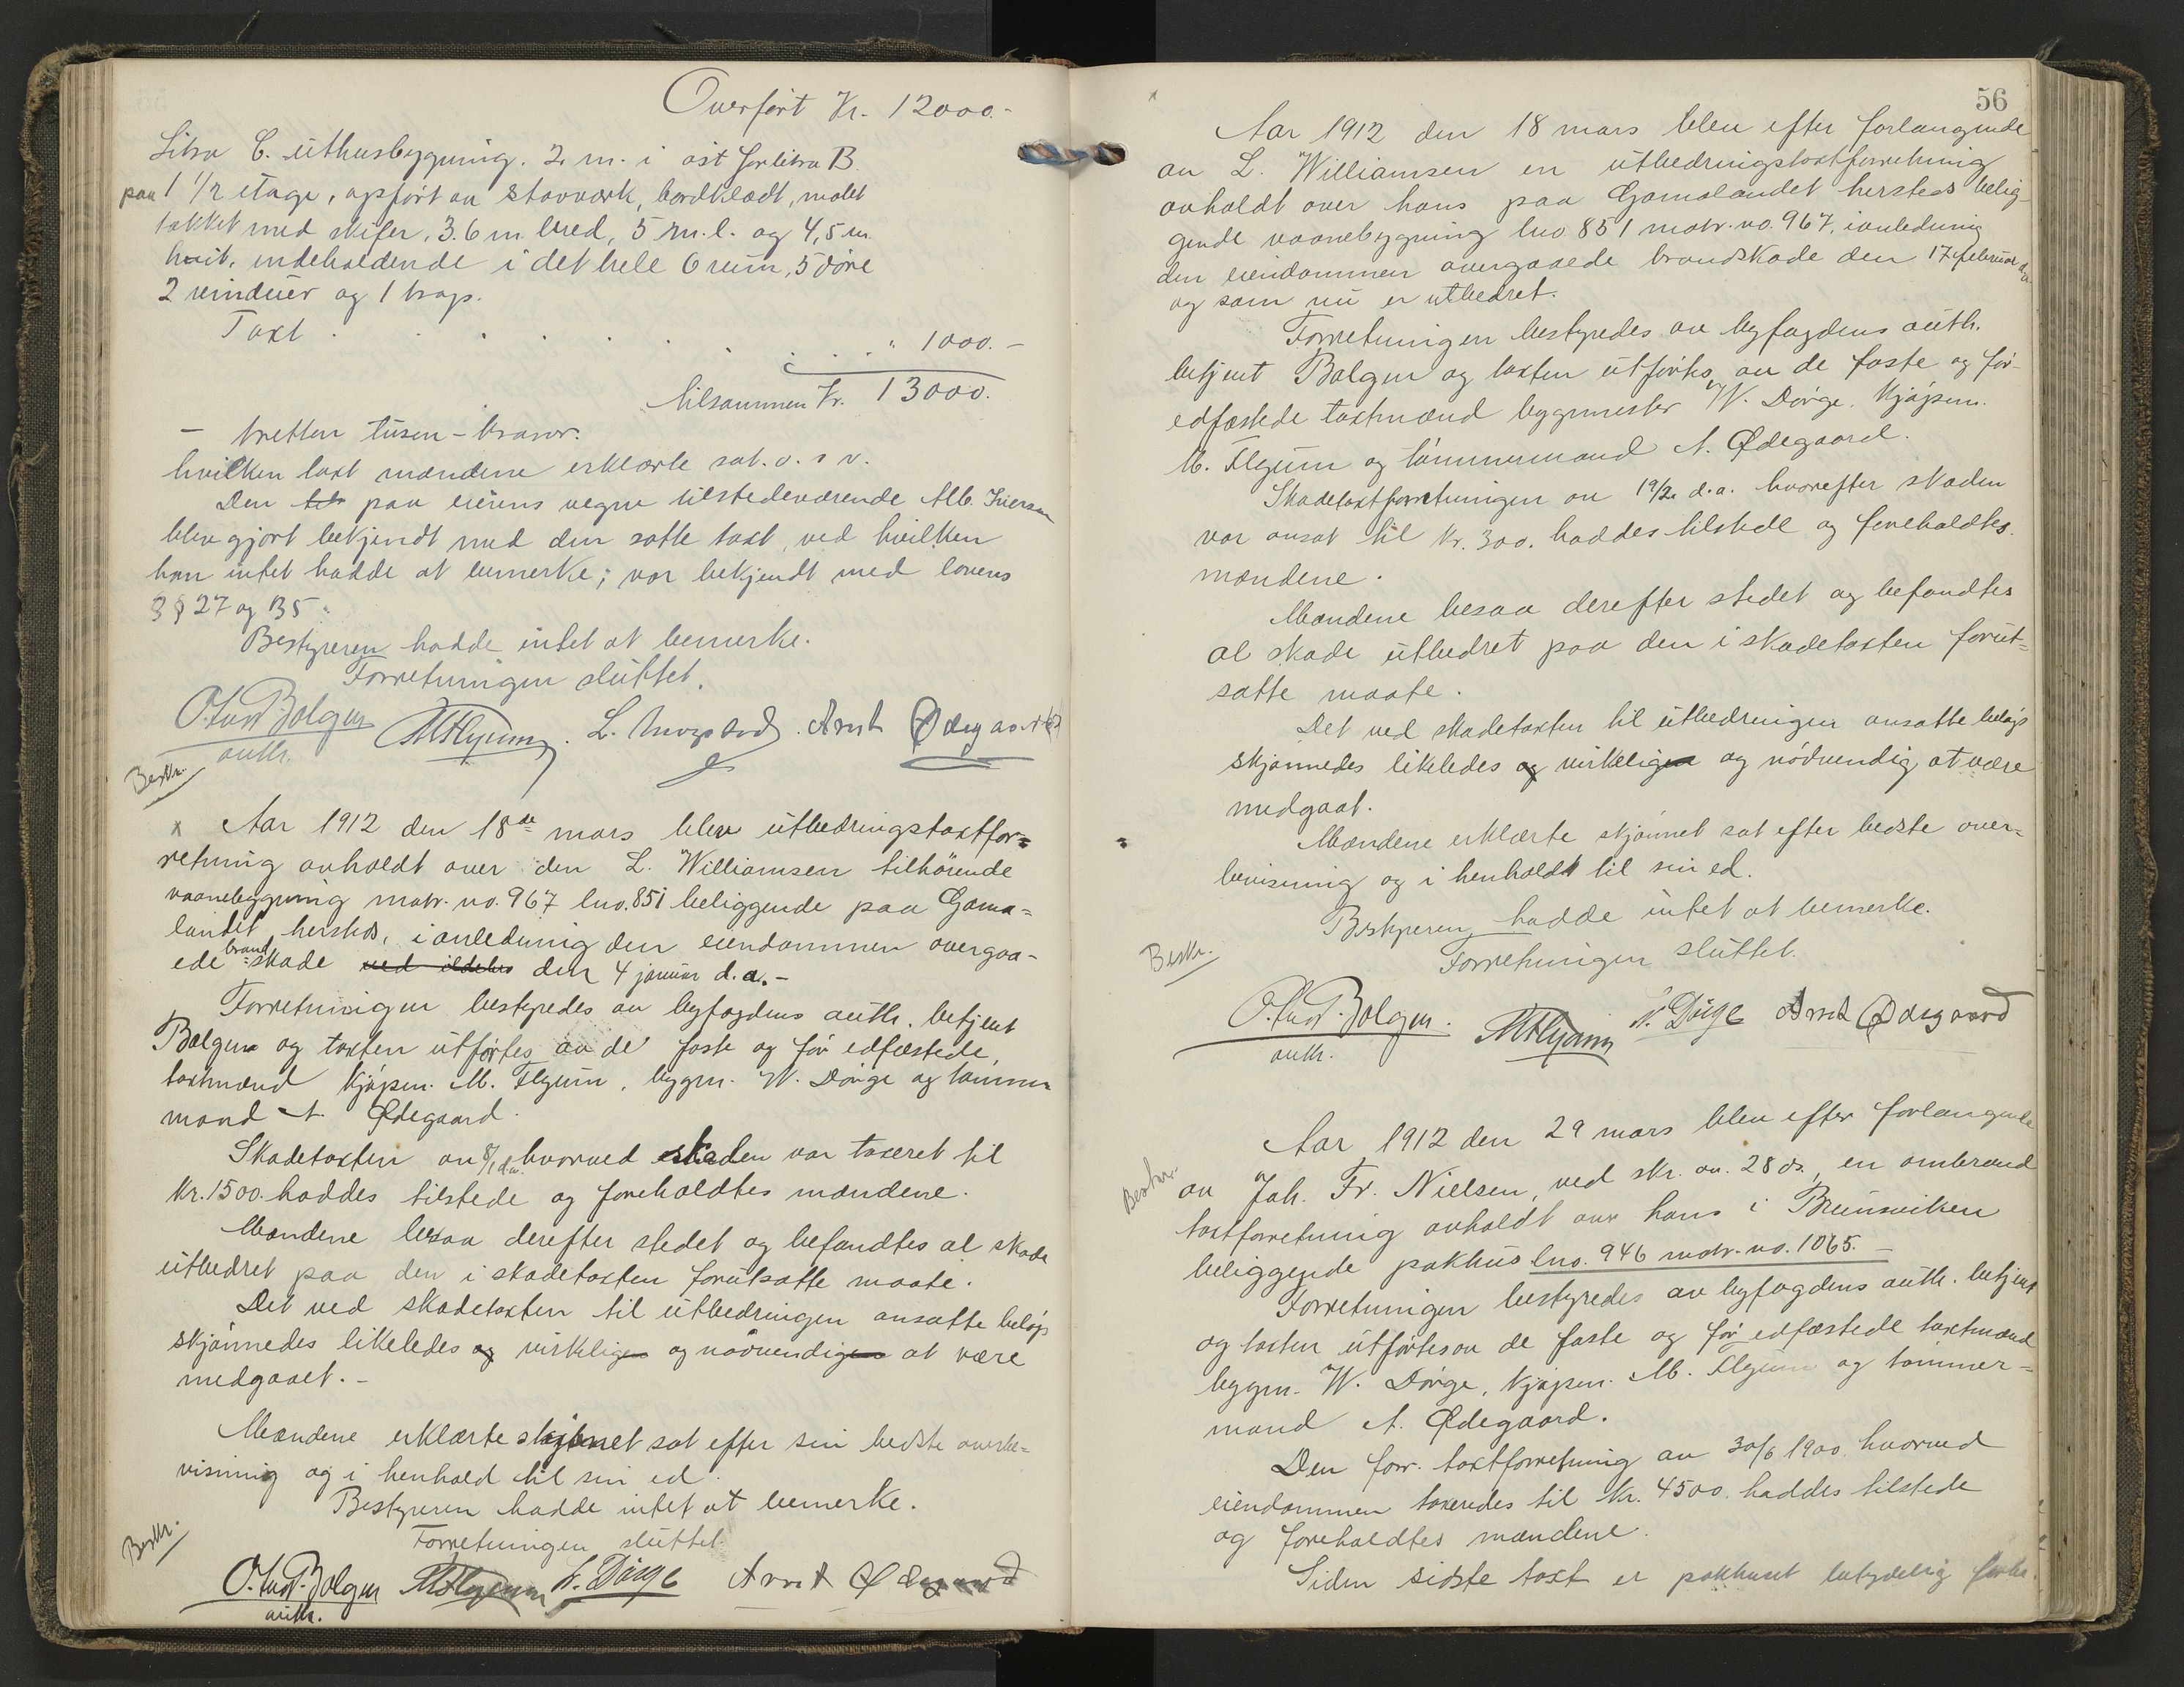 Overført Kr. 12000.-
Litra C. uthusbygning. 2 m. i øst for litra B.
paa 1 1/2 etage, opført av stavværk, bordklædt, malet
tækket med skifer, 3.6 m bred, 5 m. l. og 4,5 m.
høit, indeholdende i det hele 6 rum, 5 døre
2 vinduer og 1 trap.
Taxt . . . . . . . . . " 1000.-
tilsammen Kr. 13000.
- tretten tusen - kroner.
hvilken taxt mændene erklærte sat. o. s v.
Den paa eierens vegne tilstedeværende Alb. Iversen
blev gjort bekjendt med den satte taxt, ved hvilken
han intet hadde at bemerke; var bekjendt med lovens
§§ 27 og 35.
Bestyreren hadde intet at bemerke.
Forretningen sluttet.
O. Lust. Bolgen MFlyum. L. Arnt Ødegaard
auth.
Beskr.
x Aar 1912 den 18de mars blev utbedringstaxtfor=
retning avholdt over den L. Williamsen tilhörende
vaanebygning matr. no. 967 lno. 851 beliggende paa Goma=
landet hersteds, i anledning den eiendommen overgaa-
ede brand-skade ved ildebr den 4 januar d.a.-
Forretningen bestyredes av byfogdens auth. betjent
Bolgen og taxten utførtes av de faste og før edfæstede
taxtmænd kjøpm. M. Flyum, bygm. W. Dörge og tömmer
mand A. Ødegaard.
Skadetaxten av 8/1 d.a. hvorved skaden var taxeret til
Kr. 1500. haddes tilstede og foreholdtes mændene.
Mændene besaa derefter stedet og befandtes al skade
utbedret paa den i skadetaxten forutsatte maate.
Det ved skadetaxten til utbedringen ansatte beløp
skjønnedes likeledes og virkeligen og nødvendigen at være
medgaaet.-
Mændene erklærte skjønnet sat efter sin bedste overbe=
visning og i henhold til sin ed.
Bestyreren hadde intet at bemerke.
Forretningen sluttet
Beskr.
O. Lust. Bolgen MFlyum W. Dörge Arnt Ødegaard
auth.
56
Aar 1912 den 18 mars blev efter forlangende
av L. Williamsen en utbedringstaxtforretning
avholdt over hans paa Gomalandet hersteds belig-
gende vaanebygning lno. 851 matr. no. 967, i anledning
den eiendommen overgaaede brandskade den 17 februar d.a.
og som nu er utbedret.
Forretningen bestyredes av byfogdens auth.
betjent Bolgen og taxten utførtes av de faste og før-
edfæstede taxtmænd bygmester W. Dörge. Kjøpm.
M. Flyum og tömmermand A. Ødegaard.
Skadetaxtforretningen av 19/2. d.a. hvorefter skaden
var ansat til Kr. 300. haddes tilstede og foreholdtes
mændene.
Mændene besaa derefter stedet og befandtes
al skade utbedret paa den i skadetaxten forut=
satte maate.
Det ved skadetaxten til utbedringen ansatte beløp
skjønnedes likeledes og virkeligen og nødvendig at være
medgaat.
Mændene erklærte skjønnet sat efter bedste over=
bevisning og i henholdt til sin ed.
Bestyreren hadde intet at bemerke.
Forretningen sluttet.
Beskr.
O. Lust. Bolgen. MFlyum W. Dörge Arnt Ødegaard
auth.
Aar 1912 den 29 mars blev efter forlangende
Beskr.
av Joh. Fr. Nielsen, ved skr. av. 28 ds., en ombrand
taxtforretning avholdt over hans i Brunsviken
beliggende pakhus lno. 946 matr. no. 1065.-
Forretningen bestyredes av byfogdens auth. betjent
og taxten utførtes av de faste og før edfæstede taxtmænd
bygm. W. Dörge, kjøpm. M. Flyum og tömmer=
mand A. Ødegaard.
Den forr. taxtforretning av 30/6 1900. hvorved
eiendommen taxeredes til Kr. 4500. haddes tilstede
og foreholdtes mændene.
Siden sidste taxt er pakhuset betydelig